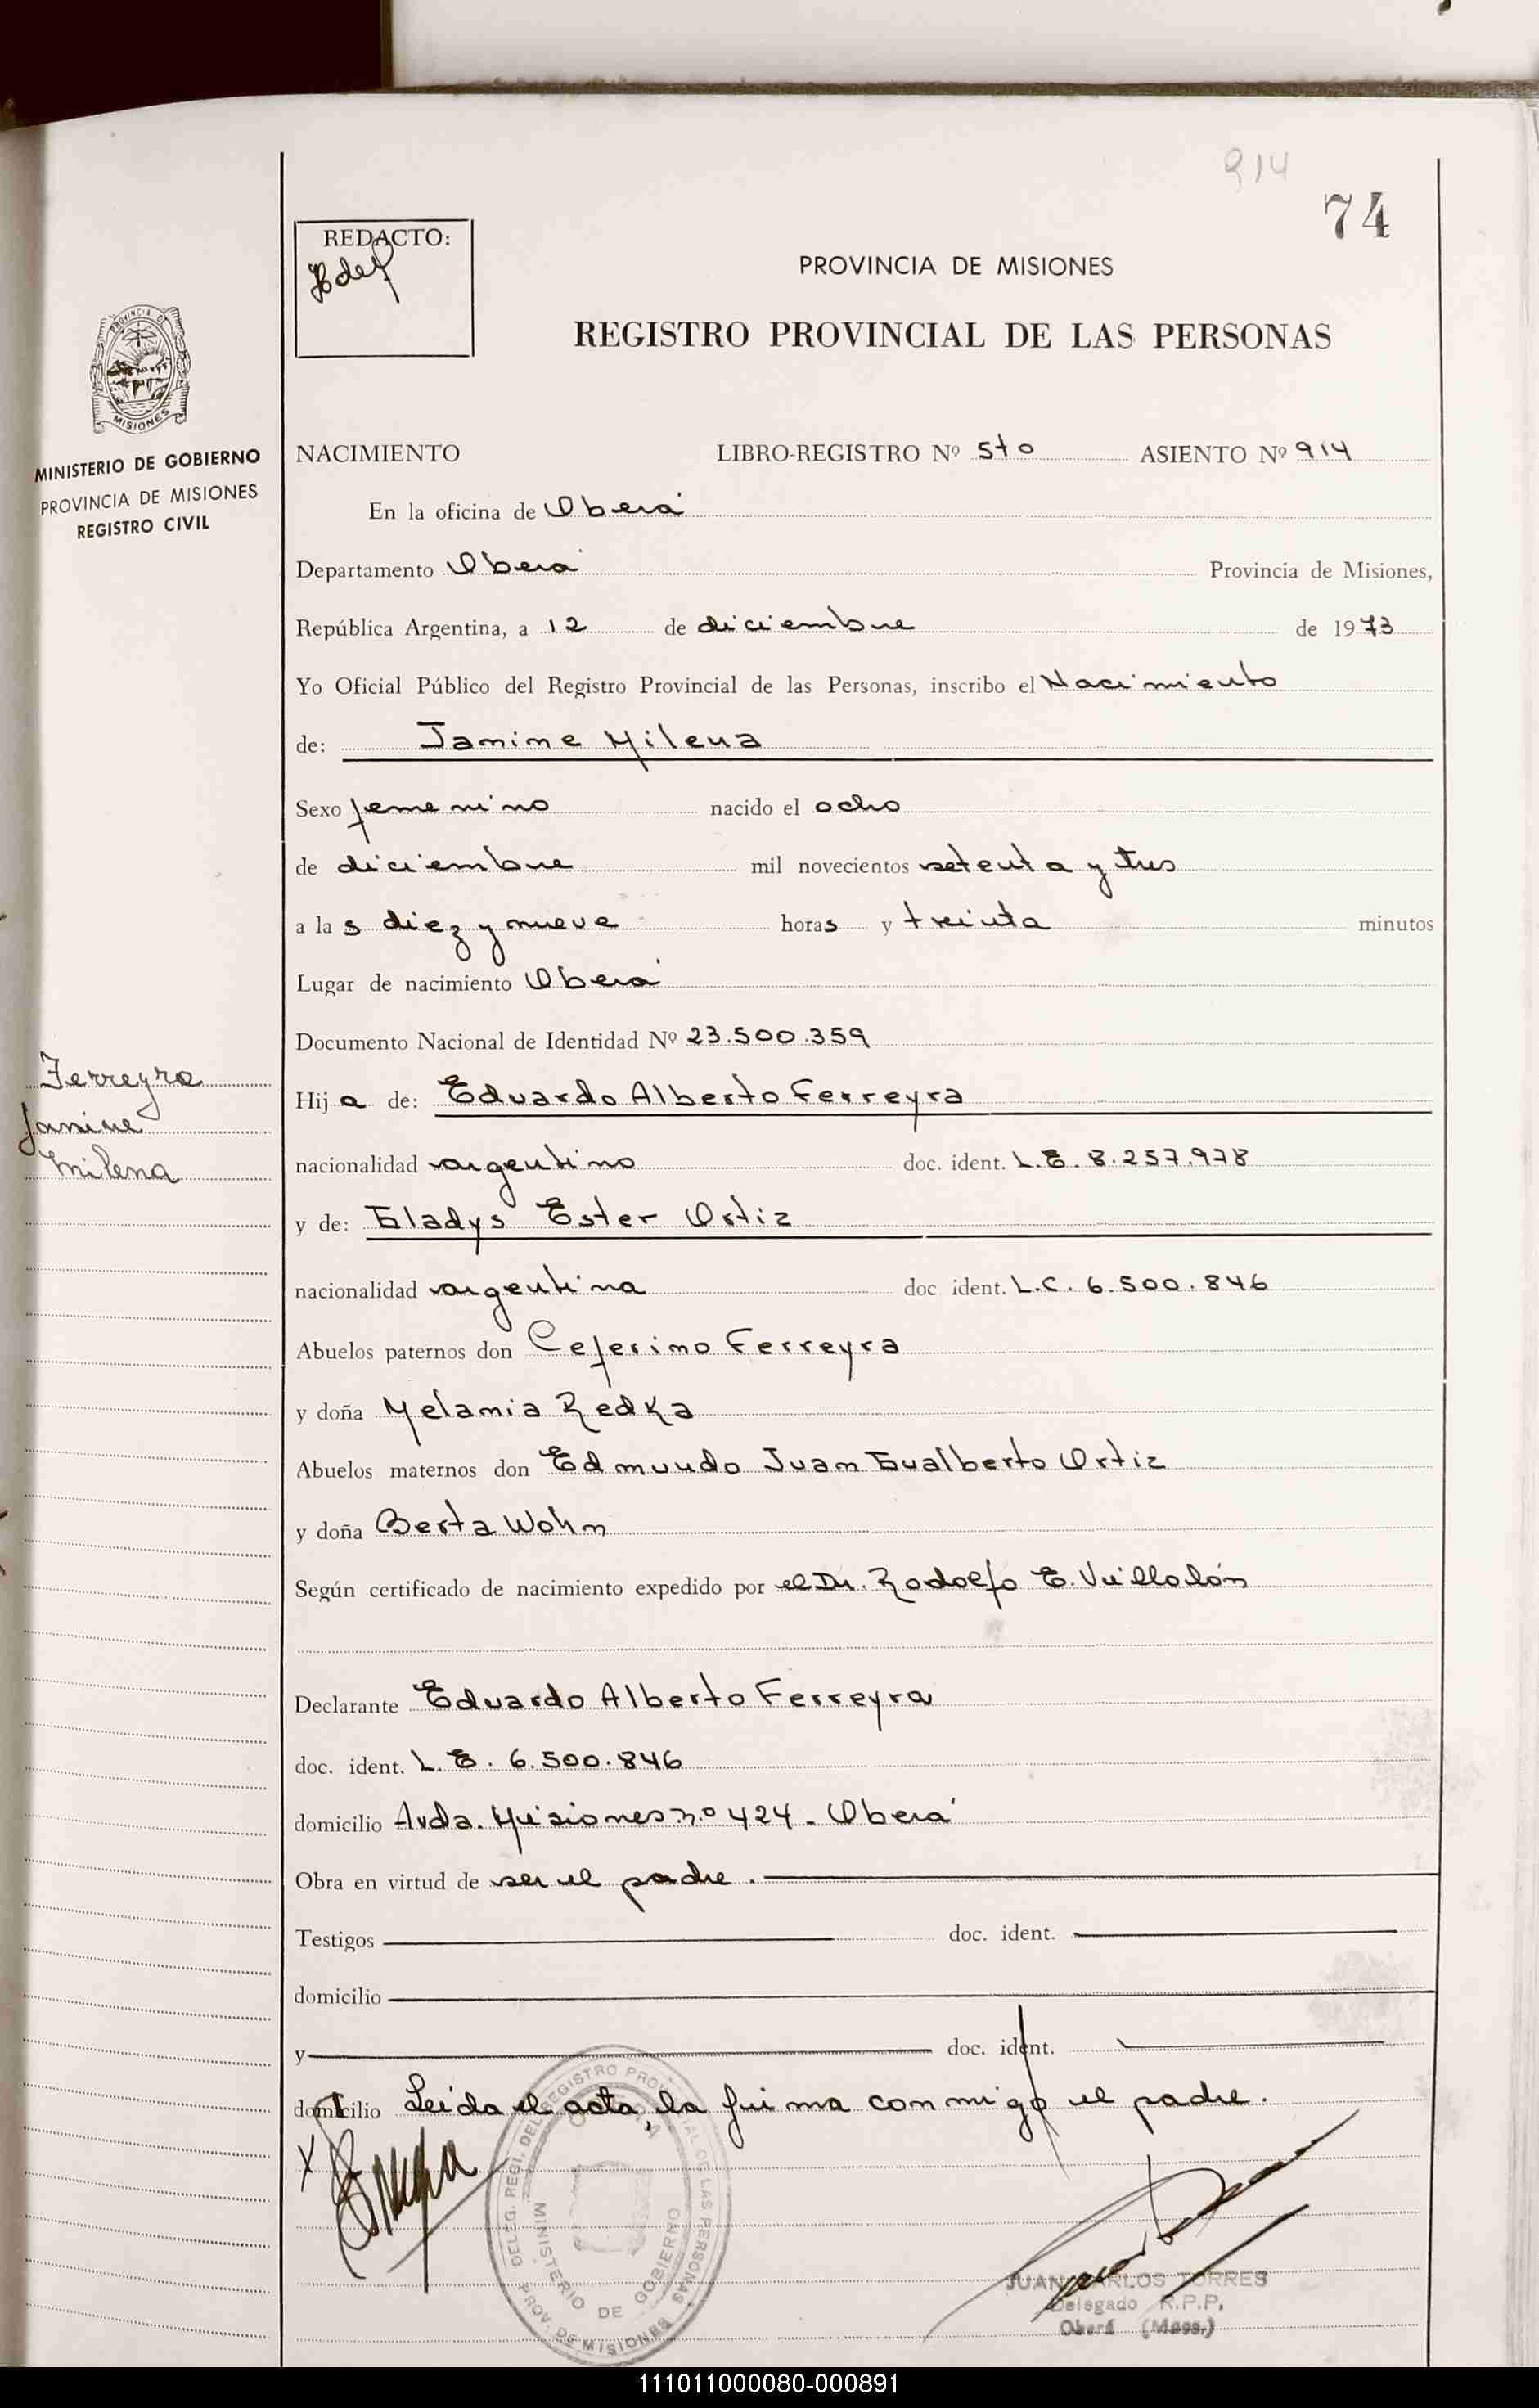 914
74
REDACTO:
PROVINCIA DE MISIONES
REGISTRO PROVINCIAL DE LAS PERSONAS
PROVINCIA DE
MISIONES
MINISTERIO DE GOBIERNO
PROVINCIA DE MISIONES
REGISTRO CIVIL
NACIMIENTO LIBRO-REGISTRO Nº 5to ASIENTO Nº 914
En la oficina de Oberá
Departamento Oberá Provincia de Misiones,
República Argentina, a 12 de diciembre de 1973
Yo Oficial Público del Registro Provincial de las Personas, inscribo el Nacimiento
de: Janine Milena
Sexo femenino nacido el ocho
de diciembre mil novecientos setenta y tres
a las diez y nueve horas y treinta minutos
Lugar de nacimiento Oberá
Documento Nacional de Identidad Nº 23.500.359
Ferreyra
Janine
Milena
Hija de: Eduardo Alberto Ferreyra
nacionalidad argentino doc. ident. L.E. 8.257.978
y de: Gladys Ester Ortiz
nacionalidad argentina doc ident. L.C. 6.500.846
Abuelos paternos don Ceferino Ferreyra
y doña Melania Redka
Abuelos maternos don Edmundo Juan Gualberto Ortiz
y doña Berta Wohn
Según certificado de nacimiento expedido por el Dr. Rodolfo E.
Declarante Eduardo Alberto Ferreyra
doc. ident. L.E. 6.500.846
domicilio Avda. Misiones n.º 424 - Oberá
Obra en virtud de ser el padre.
Testigos doc. ident.
domicilio
y doc. ident.
domicilio Leida el acta, la firma conmigo el padre.
X
DELEG. REGI. DEL REGISTRO PROVINCIAL DE LAS PERSONAS
MINISTERIO DE GOBIERNO
PROV. DE MISIONES
JUAN CARLOS TORRES
Delegado R.P.P.
Oberá (Mnes.)
111011000080-000891